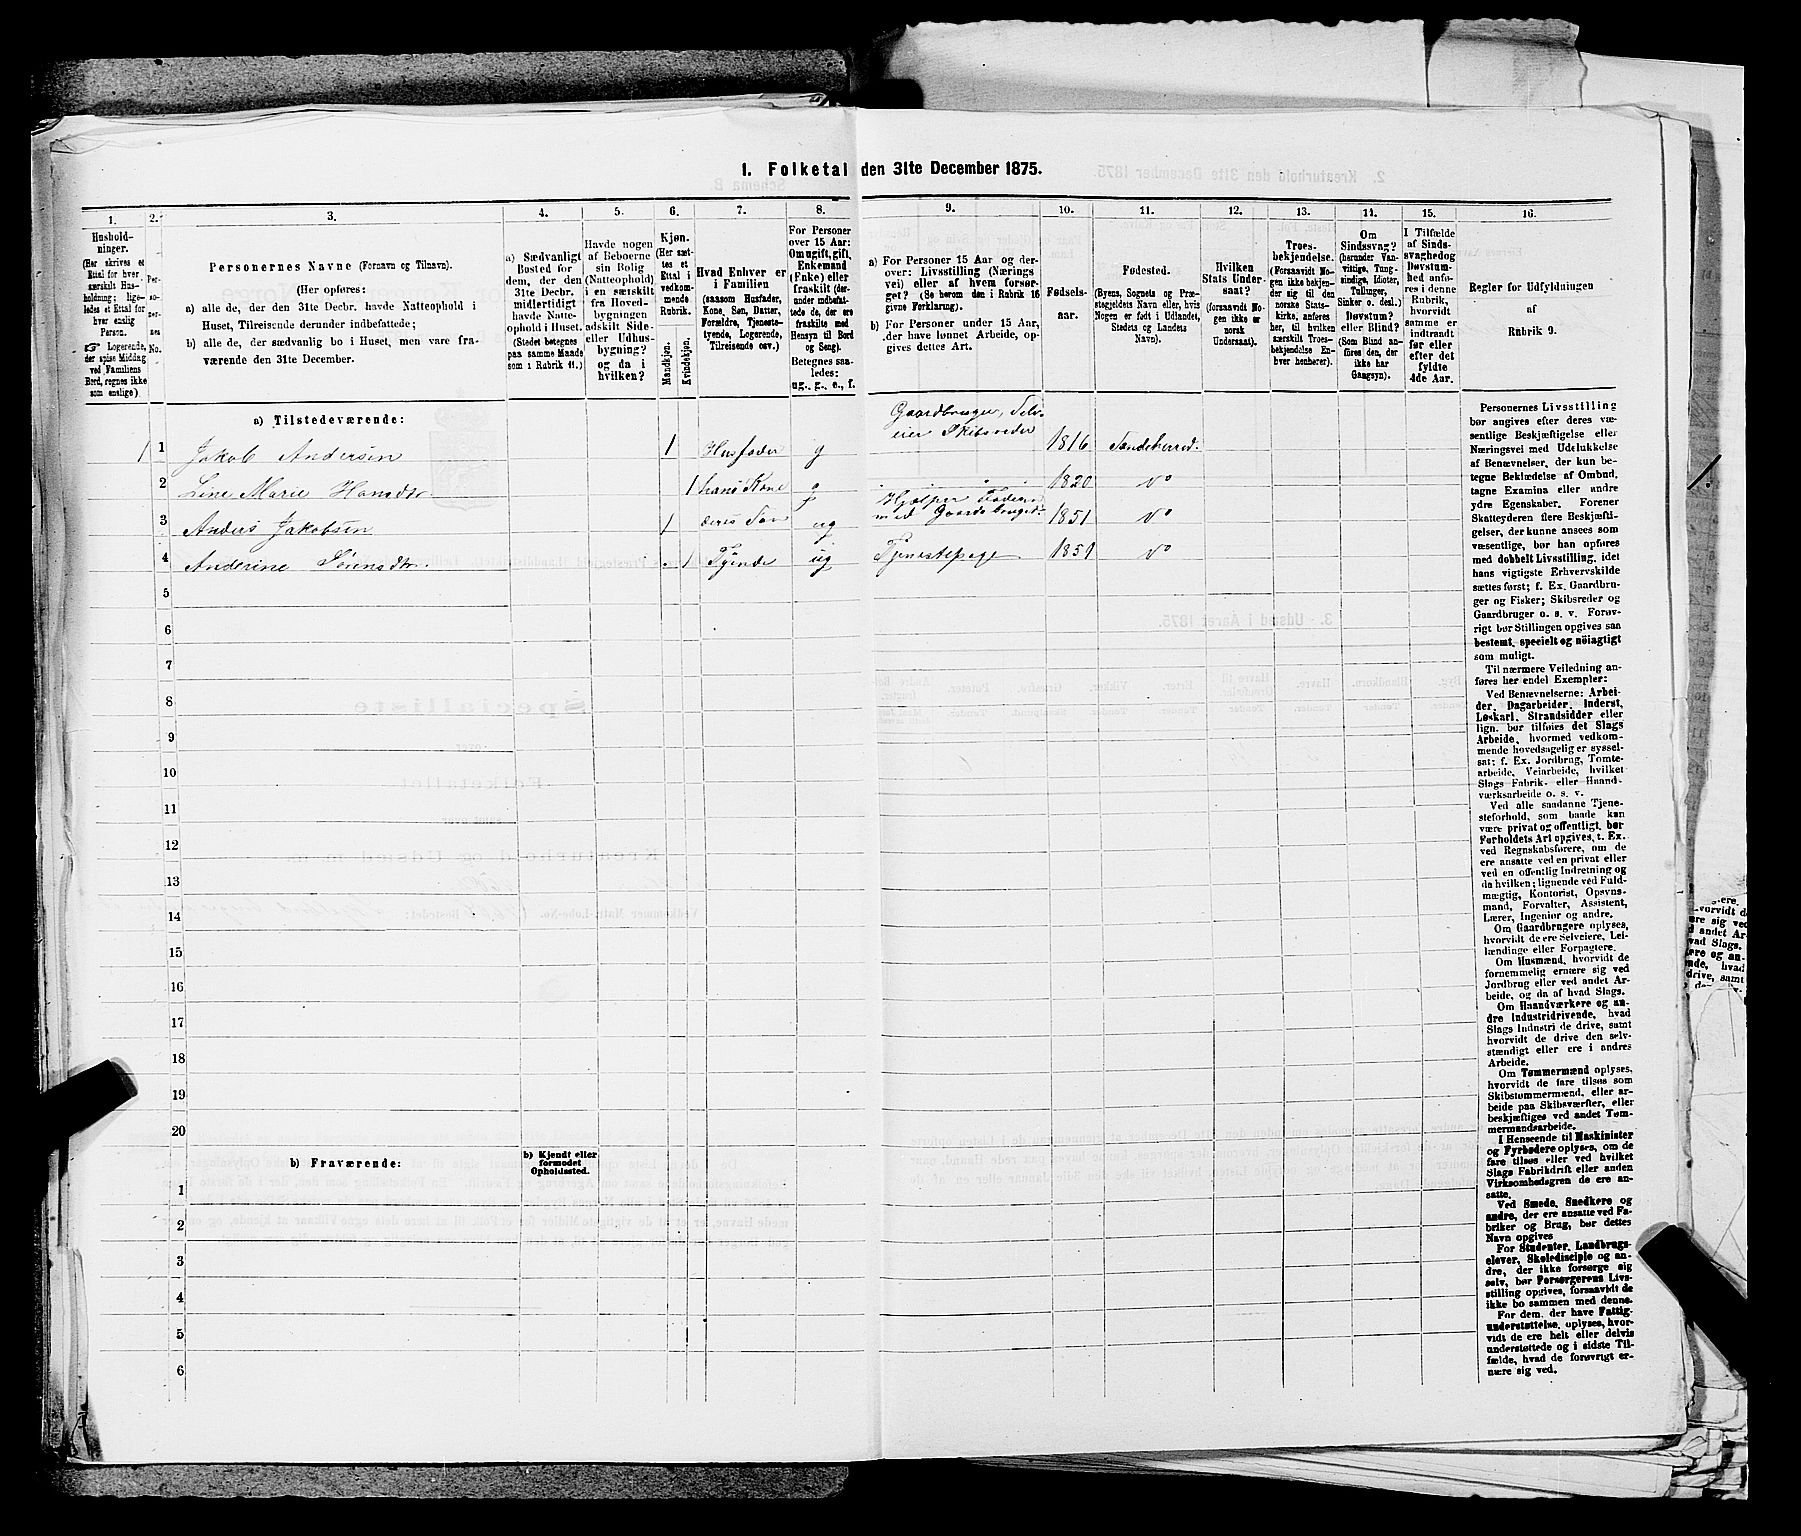 1. Folketal den 31te December 1875.
1. 2. 3. 4. 5. 6. 7. 8. 9. 10. 11. 12. 13. 14. 15. 16.
Husholdninger.
(Her skrives et
Ettal for hver
særskilt Husholdning;
ligeledes
et Ettal for
hver enslig
Person.
☞ Logerende,
der spise Middag
ved Familiens
Bord, regnes ikke
som enslige).
Personernes
No.
Personernes Navne (Fornavn og Tilnavn).
(Her opføres:
a) alle de, der den 31te Decbr. havde Natteophold i
Huset, Tilreisende derunder indbefattede;
b) alle de, der sædvanlig bo i Huset, men vare fraværende
den 31te December.
a) Sædvanligt
Bosted for
dem, der den
31te Decbr.
midlertidigt
havde Natteophold
i Huset.
(Stedet betegnes
paa samme Maade
som i Rubrik 11.)
Havde nogen
af Beboerne
sin Bolig
(Natteophold)
i en særskilt
fra Hovedbygningen
adskilt Side-
eller Udhusbygning?
og da i
hvilken?
Kjøn.
(Her sættes
et
Ettal i
vedkommende
Rubrik.
Mandkjøn.
Kvindekjøn.
Hvad Enhver er
i Familien
(saasom Husfader,
Kone, Søn, Datter,
Forældre, Tjenestetyende,
Logerende,
Tilreisende osv.)
For Personer
over 15 Aar:
Om ugift, gift,
Enkemand
(Enke) eller
fraskilt (derunder
indbefattede
de, der ere
fraskilte med
Hensyn til Bord
og Seng).
Betegnes saaledes:
ug., g., e., f.
a) For Personer 15 Aar og derover:
Livsstilling (Næringsvei)
eller af hvem forsørget?
(Se herom den i Rubrik 16
givne Forklaring).
b) For Personer under 15 Aar,
der have lønnet Arbeide, opgives
dettes Art.
Fødselsaar.
Fødested.
(Byens, Sognets og Præstegjeldets
Navn eller, hvis
Nogen er født i Udlandet,
Stedets og Landets
Navn).
Hvilken
Stats Undersaat?
(forsaavidt Nogen
ikke er
norsk
Undersaat).
Troesbekjendelse.
(Forsaavidt Nogen
ikke bekjender
sig til den
norske Statskirke,
anføres
her, til hvilken
særskilt Troesbekjendelse
Enhver
henhører).
Om
Sindssvag?
(herunder Vanvittige,
Tungsindige,
Idioter,
Tullinger,
Sinker o. desl.)
Døvstum?
eller Blind?
(Som Blind anføres
den, der
ikke har
Gangsyn).
I Tilfælde
af Sindssvaghed
og
Døvstumhed
anføres
i denne
Rubrik,
hvorvidt
samme er
indtraadt
før eller
efter det
fyldte
4de Aar.
Regler for Udfyldningen
af
Rubrik 9.
a) Tilstedeværende:
1 1 Jakob Andersen 1 Husfader g Gaardbruger, Selveier Skibsreder 1816 Sandeherred.
2 Line Marie Hansdtr 1 hans Kone g 1820 Do
3 Anders Jakobsen 1 deres Søn ug Hjælper Faderen med Gaardsbruget 1851 Do
4 Anderine Sørensdtr. 1 Tyende ug Tjenestepige 1851 Do
5
6
7
8
9
10
11
12
13
14
15
16
17
18
19
20
b) Fraværende:
b) Kjendt eller
formodet
Opholdssted.
1
2
3
4
5
6
Personernes Livsstilling
bør angives efter deres væsentlige
Beskjæftigelse eller
Næringsvei med Udelukkelse
af Benævnelser, der kun betegne
Beklædelse af Ombud,
tagne Examina eller andre
ydre Egenskaber. Forener
Skatteyderen flere Beskjæftigelser,
der kunne ansees som
væsentlige, bør han opføres
med dobbelt Livsstilling, idet
hans vigtigste Erhvervskilde
sættes først; f. Ex. Gaardbruger
og Fisker; Skibsreder og
Gaardbruger o. s. v. Forøvrigt
bør Stillingen opgives saa
bestemt, specielt og nöiagtigt
som muligt.
Til nærmere Veiledning anføres
her endel Exempler:
Ved Benævnelserne: Arbeider,
Dagarbeider, Inderst,
Løskarl, Strandsidder eller
lign. bør tilføies det Slags
Arbeide, hvormed vedkommende
hovedsagelig er sysselsat;
f. Ex. Jordbrug, Tomtearbeide,
Veiarbeide, hvilket
Slags Fabrik- eller Haandværksarbeide
o. s. v.
Ved alle saadanne Tjenesteforhold,
som baade kan
være privat og offentligt, bør
Forholdets Art opgives, t. Ex.
ved Regnskabsførere, om de
ere ansatte ved en privat eller
ved en offentlig Indretning og
da hvilken; lignende ved Fuldmægtig,
Kontorist, Opsynsmand,
Forvalter, Assistent,
Lærer, Ingeniør og andre.
Om Gaardbrugere oplyses,
hvorvidt de ere Selveiere, Leilændinge
eller Forpagtere.
Om Husmænd, hvorvidt de
fornemmelig ernære sig ved
Jordbrug eller ved andet Arbeide,
og da af hvad Slags.
Om Haandværkere og andre
Industridrivende, hvad
Slags Industri de drive, samt
hvorvidt de drive den selvstændigt
eller ere i andres
Arbeide.
Om Tømmermænd oplyses,
hvorvidt de fare tilsøs som
Skibstømmermænd, eller arbeide
paa Skibsværfter, eller
beskjæftiges ved andet Tømmermandsarbeide.
I Henseende til Maskinister
og Fyrbødere oplyses, om de
fare tilsøs eller ved hvilket
Slags Fabrikdrift eller anden
Virksomhedsgren de ere ansatte.
Ved Smede, Snedkere og
andre, der ere ansatte ved Fabriker
og Brug, bør dettes
Navn opgives
For Studenter, Landbrugselever,
Skoledisciple og andre,
der ikke forsørge sig
selv, bør Forsørgerens Livsstilling
opgives, forsaavidt de
ikke bo sammen med denne.
For dem, der have Fattigunderstøttelse,
oplyses, hvorvidt
de ere helt eller delvis
understøttede og i sidste Tilfælde,
hvad de forøvrigt ernære
sig ved.